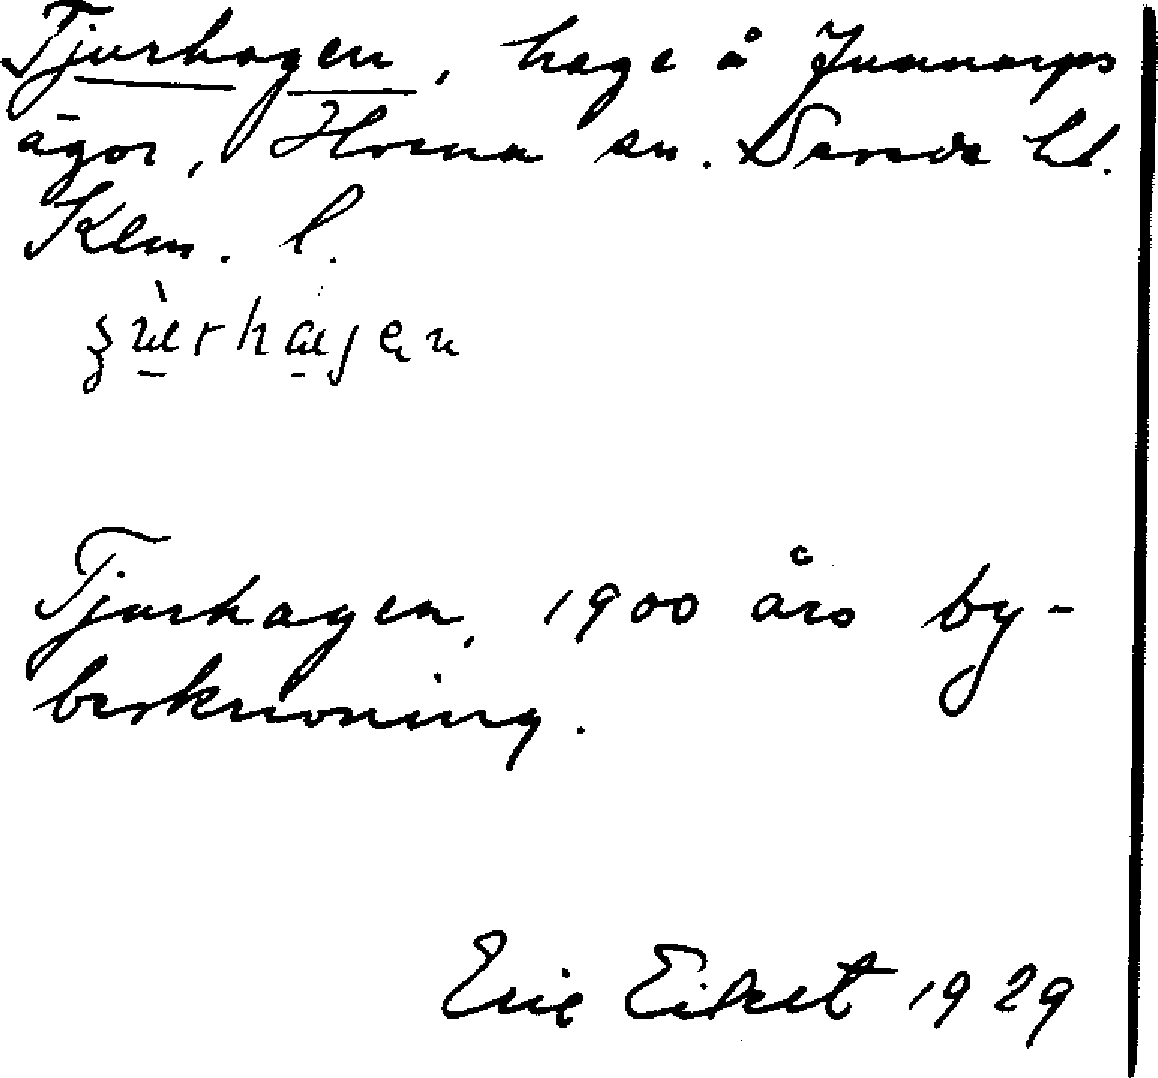 Tjurhagen, hage å Junnarps
ägor, Horns sn. Sevede hd.
Kalm. l.
Tjurhagen, 1900 års by-
beskrivning.
Eric Eiket 1929